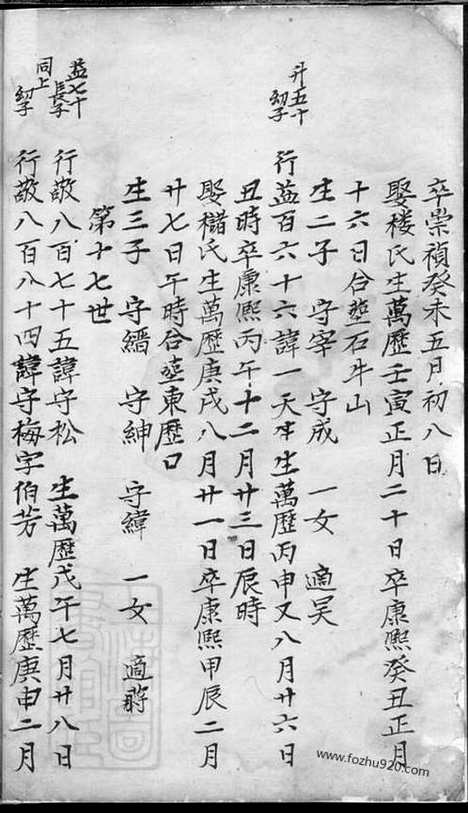 卒崇禎癸未五月初八日
娶楼氏生萬歷壬寅正月二十日卒康熙癸丑正月
十六日合塟石牛山
生二子 守宰 守成 一女 適吴
升五十
幼子
行益百六十六諱一天生萬歷丙申又八月廿六日
丑時卒康熙丙午十二月廿三日辰時
娶𥠖氏生萬歷庚戌八月廿一日卒康熙甲辰二月
廿七日午時合塟東歷口
生三子 守縉 守紳 守緯 一女 適蔣
第十七世
益七十
長子
行敬八百七十五諱守松 生萬歷戊午七月廿八日
同上
幼子
行敬八百八十四諱守梅字伯芳 生萬歷庚申二月
www.fozhu920.com